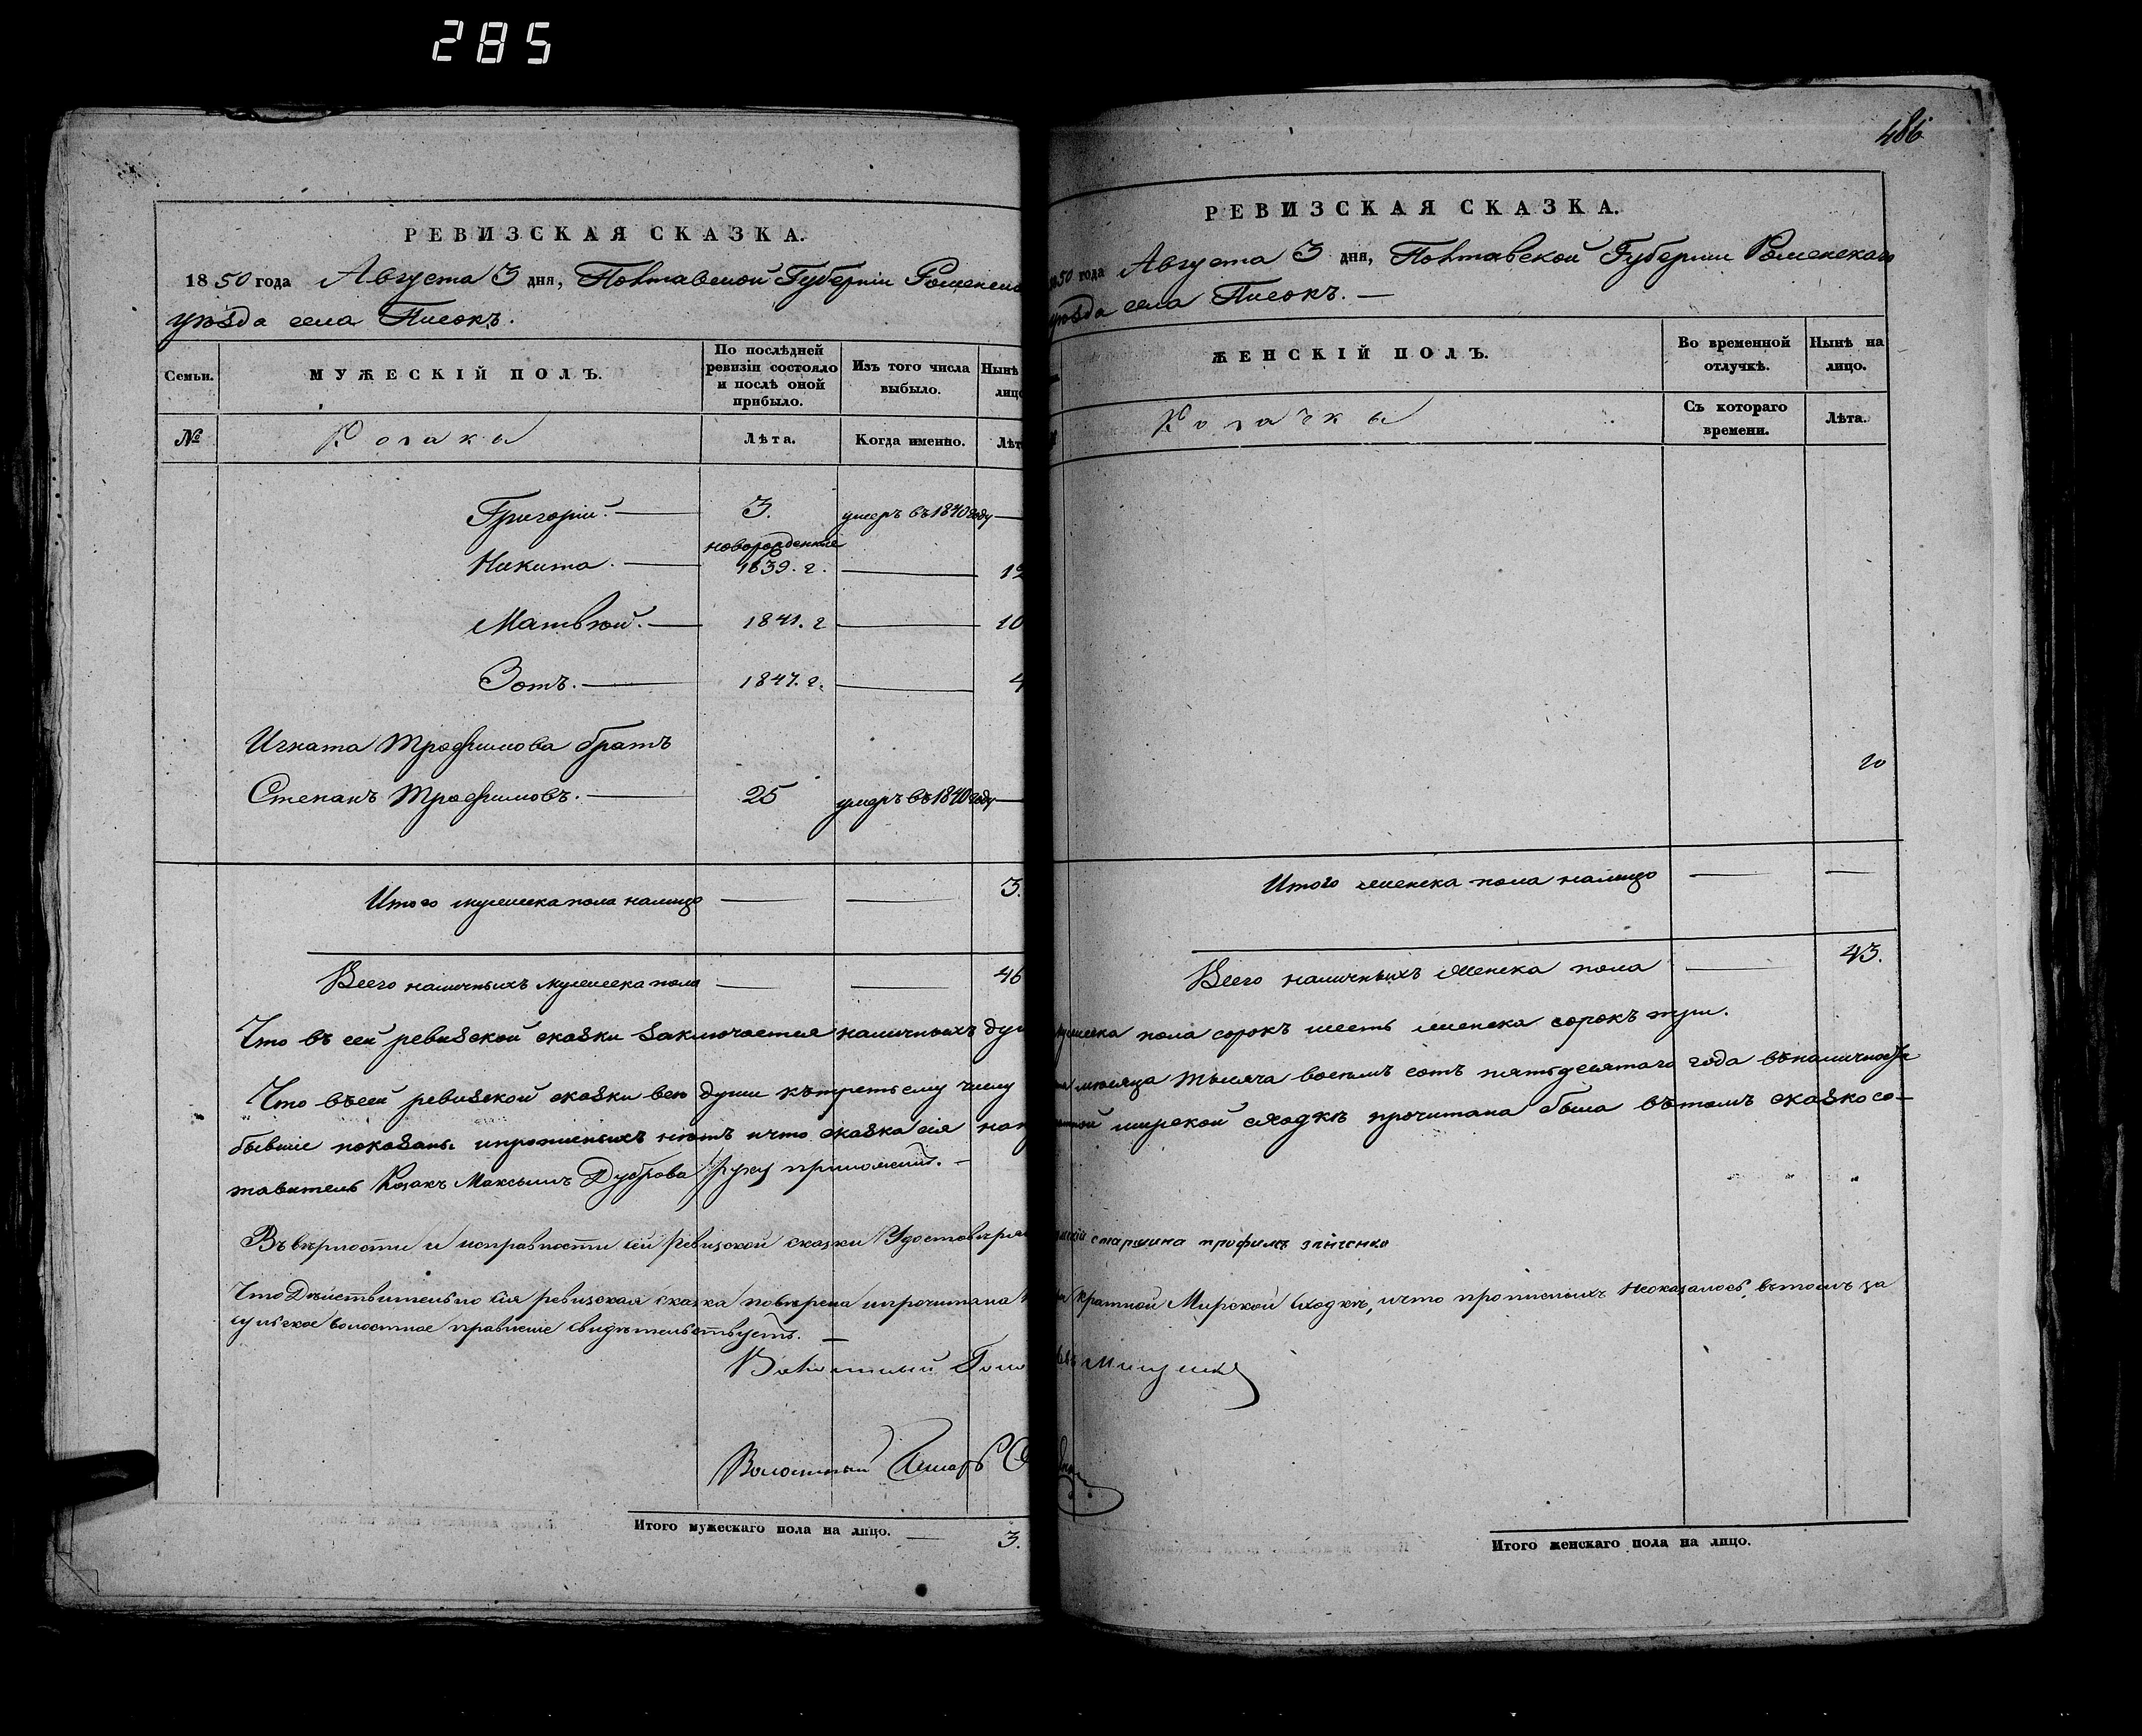 285
РЕВИЗСКАЯ СКАЗКА.
1850 года Августа 3 дня, Полтавской Губернiи Роменска
уѣзда села Писокъ.
Семьи.
МУЖЕСКIЙ ПОЛЪ.
По послѣдней ревизiи состояло и послѣ оной прибыло.
Изъ того числа выбыло.
Нынѣ лицо
№
Козаки
Лѣта.
Когда именно.
Лѣт
Григорiй. — 3. умеръ въ 1840 году —
новорожденные
Никита. — 1839. г. — 12
Матвѣй. — 1841. г — 10
Зотъ. — 1847. г. — 4
Игната Трофимова братъ
Степанъ Трофимовъ. — 25 умеръ въ 1840 году —
Итого мужеска пола налицо — — 3.
Всего наличныхъ мужеска пола — — 46
Что въ сей ревизской сказки заключается наличныхъ душ
Что въ сей ревизской сказки всѣ души къ третьему числу
бывшiе показаны и прописныхъ нѣтъ и что сказка сiя на
тавитель Козакъ Максымъ Дуброва руку приложилъ. —
Въ вѣрности и исправности сей ревизской сказки Удостовѣряе
Что Дѣйствительно сiя ревизская сказка повѣрена и прочитана
волостное правленiе свидѣтельствуетъ. —
Волостный Голо
Волостный Писарь
Итого мужескаго пола на лицо. — 3.
486
РЕВИЗСКАЯ СКАЗКА.
1850 года Августа 3 дня, Полтавской Губернiи Роменскаго
уѣзда села Писокъ. —
ЖЕНСКIЙ ПОЛЪ.
Во временной отлучкѣ.
Нынѣ на лицо.
Козачки
Съ котораго времени.
Лѣта.
Итого женска пола налицо — —
Всего наличныхъ женска пола — 43.
мужеска пола сорокъ шесть женска сорокъ три.
мѣсяца тысяча восемь сотъ пятьдесятаго года въ наличности
мирской сходкѣ прочитана была въ томъ сказко со-
старшина трофимъ
кратной Мирской сходкѣ, и что прописныхъ неоказалось, въ томъ за
Итого женскаго пола на лицо.